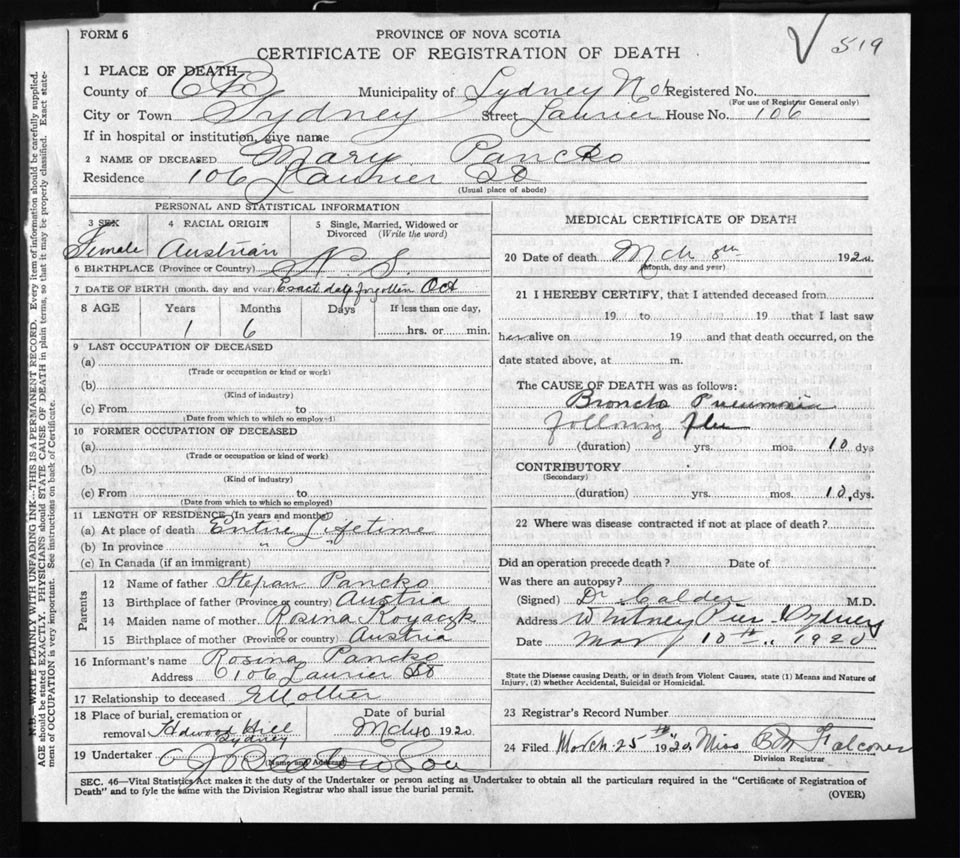 FORM 6
PROVINCE OF NOVA SCOTIA
CERTIFICATE OF REGISTRATION OF DEATH
519
1 PLACE OF DEATH—
County of C B Municipality of Sydney No Registered No.
(For use of Registrar General only)
City or Town Sydney Street Laurier House No. 106
If in hospital or institution, give name
2 NAME OF DECEASED Mary Pancko
Residence 106 Laurier St
(Usual place of abode)
PERSONAL AND STATISTICAL INFORMATION
3 SEX 4 RACIAL ORIGIN 5 Single, Married, Widowed or Divorced (Write the word)
Female Austrian
6 BIRTHPLACE (Province or Country) N. S.
7 DATE OF BIRTH (month, day and year) Exact date forgotten Oct
8 AGE Years Months Days If less than one day,
1 6 hrs. or min.
9 LAST OCCUPATION OF DECEASED
(a)
(Trade or occupation or kind or work)
(b)
(Kind of industry)
(c) From to
(Date from which to which so employed)
10 FORMER OCCUPATION OF DECEASED
(a)
(Trade or occupation or kind of work)
(b)
(Kind of industry)
(c) From to
(Date from which to which so employed)
11 LENGTH OF RESIDENCE (In years and months)
(a) At place of death Entire Lifetime
(b) In province " "
(c) In Canada (if an immigrant)
Parents
12 Name of father Stepan Pancko
13 Birthplace of father (Province or country) Austria
14 Maiden name of mother Rosina
15 Birthplace of mother (Province or country) Austria
16 Informant's name Rosina Pancko
Address 106 Laurier St
17 Relationship to deceased Mother
18 Place of burial, cremation or Date of burial
removal Hill Sydney Mch 10 1920
19 Undertaker
Name and Address
MEDICAL CERTIFICATE OF DEATH
20 Date of death Mch 8th 1920
(Month, day and year)
21 I HEREBY CERTIFY, that I attended deceased from
19 to 19 that I last saw
her alive on 19 and that death occurred, on the
date stated above, at m.
The CAUSE OF DEATH was as follows:
Broncho Pneumonia
following flu
(duration) yrs. mos. 10 dys
CONTRIBUTORY
(Secondary)
(duration) yrs. mos. 10, dys.
22 Where was disease contracted if not at place of death?
Did an operation precede death? Date of
Was there an autopsy?
(Signed) Dr Calder M.D.
Address Whitney Pier - Sydney
Date Mar 10th, 1920
State the Disease causing Death, or in death from Violent Causes, state (1) Means and Nature of
Injury, (2) whether Accidental, Suicidal or Homicidal.
23 Registrar's Record Number
24 Filed March 25th 1920 Miss Falconer
Division Registrar
SEC. 46—Vital Statistics Act makes it the duty of the Undertaker or person acting as Undertaker to obtain all the particulars required in the "Certificate of Registration of
Death" and to fyle the same with the Division Registrar who shall issue the burial permit.
(OVER)
N.B. WRITE PLAINLY WITH UNFADING INK—THIS IS A PERMANENT RECORD. Every item of information should be carefully supplied.
AGE should be stated EXACTLY. PHYSICIANS should STATE CAUSE OF DEATH in plain terms, so that it may be properly classified. Exact state-
ment of OCCUPATION is very important. See instructions on back of Certificate.